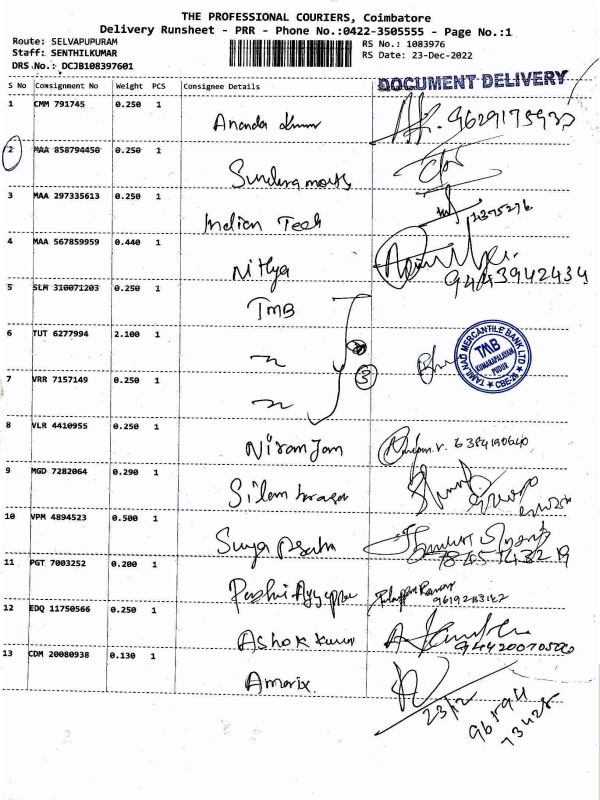 THE PROFESSIONAL COURIERS, Coimbatore
Delivery Runsheet - PRR - Phone No.:0422-3505555 - Page No.:1
Route: SELVAPUPURAM
RS No.: 1083976
Staff: SENTHILKUMAR
RS Date: 23-Dec-2022
DRS No.: DCJB108397601
DOCUMENT DELIVERY
S No Comsignment No Weight PCS Consignee Details
1 CMM 791745 0.250 1
Ananda kumar
2 MAA 858794450 0.250 1
3 MAA 297335613 0.250 1
Indian Tech
4 MAA 567859959 0.440 1
Nithya
9443942434
5 SLM 310071203 0.250 1
TMB
6 TUT 6277994 2.100 1
TAMILNAD MERCANTILE BANK LTD
TMB
KUMARAPALAYAM
PUDUR
CBE-26
7 VRR 7157149 0.250 1
3
8 VLR 4410955 0.250 1
Niranjan
6384190640
9 MGD 7282064 0.290 1
10 VPM 4894523 0.500 1
Surya
7845143219
11 PGT 7003252 0.200 1
12 EDQ 11750566 0.250 1
Ashok kumar
13 CDM 20080938 0.130 1
23/12